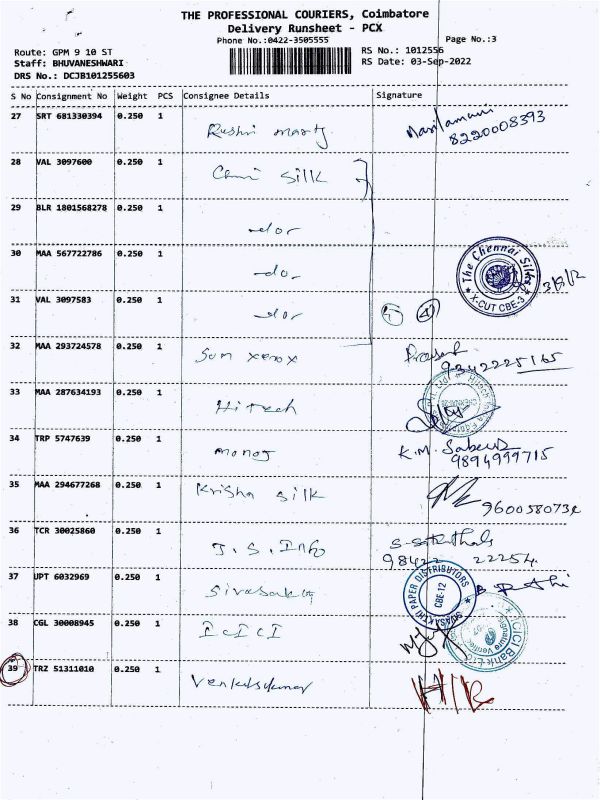 THE PROFESSIONAL COURIERS, Coimbatore
Delivery Runsheet - PCX
Phone No.:0422-3505555
Page No.:3
Route: GPM 9 10 ST
RS No.: 1012556
Staff: BHUVANESHWARI
RS Date: 03-Sep-2022
DRS No.: DCJB101255603
S No Consignment No Weight PCS Consignee Details Signature
27 SRT 681330394 0.250 1
8220008393
28 VAL 3097600 0.250 1 Silk
29 BLR 1801568278 0.250 1 -do-
30 MAA 567722786 0.250 1 -do-
The Chennai Silks
X-CUT CBE-3
31 VAL 3097583 0.250 1 -do- 4
32 MAA 293724578 0.250 1 Sun xerox
9342225165
33 MAA 287634193 0.250 1 Hitech
34 TRP 5747639 0.250 1 manoj K.M.
9894999715
35 MAA 294677268 0.250 1 Krisha silk
36 TCR 30025860 0.250 1 J.S. Info
98422 22254
37 UPT 6032969 0.250 1 Sivasakthi
SIVASAKTHI PAPER DISTRIBUTORS
CBE-12
38 CGL 30008945 0.250 1 ICICI
ICICI Bank Ltd
39 TRZ 51311010 0.250 1 Venkatskumar